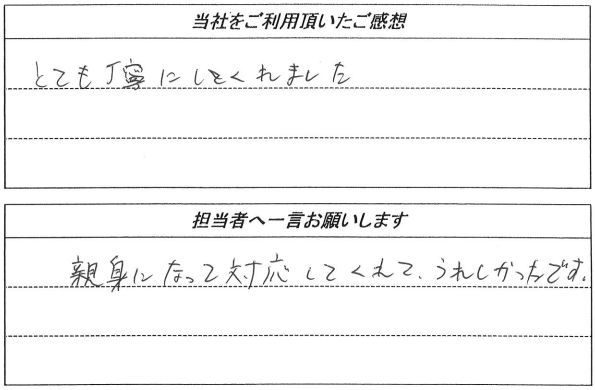 当社をご利用頂いたご感想
とても丁寧にしてくれました
担当者へ一言お願いします
親身になって対応してくれて、うれしかったです。